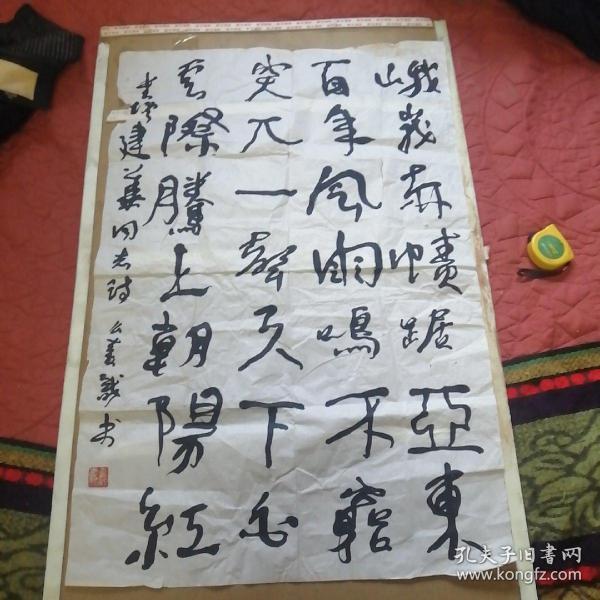 峨峩赤幘踞亞東
百年風雨鳴不窮
突兀一聲天下白
雲際騰上朝陽紅
建華同志詩
書
孔夫子旧書网
www.kongfz.com